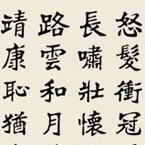 怒髮衝冠
長嘯壯懷
路雲和月
靖康恥猶